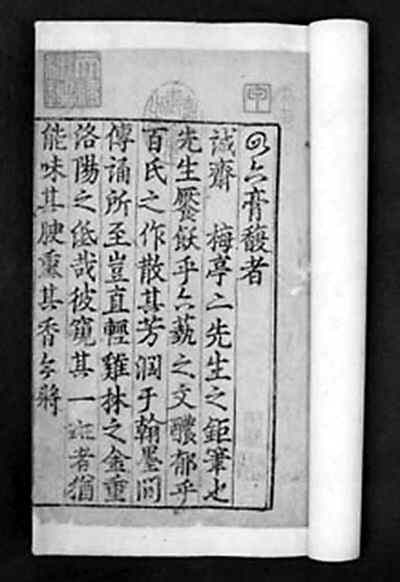 四六膏馥者
誠齋 梅亭二先生之鉅筆也
先生饜飫乎六藝之文醲郁乎
百氏之作散其芳潤于翰墨間
傳誦所至豈直輕雞林之金重
洛陽之紙哉彼窺其一斑者猶
能味其腴熏其香今將